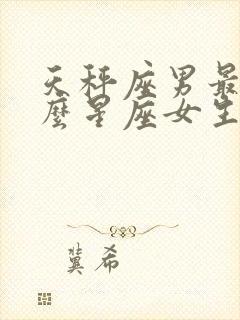 天秤座男最
麽星座女生
冀希